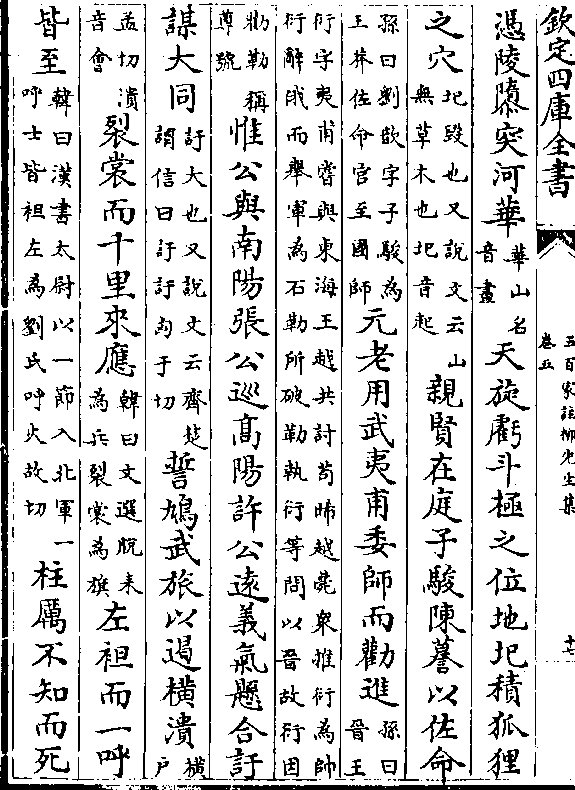 欽定四庫全書
五百家註柳先生集
卷五
十七
憑陵隳突河華華山名音畫天旋虧斗極之位地圯積狐狸
之穴圯毀也又說文云山無草木也圯音起親賢在庭子駿陳謩以佐命
孫曰劉歆字子駿為王莽佐命官至國師元老用武夷甫委師而勸進孫曰晉王
衍字夷甫嘗與東海王越共討茍晞越薨衆推衍為帥衍辭俄而舉軍為石勒所破勒執衍等問以晉故衍因
勸勒稱尊號惟公與南陽張公巡髙陽許公遠義氣懸合訏
謀大同訏大也又說文云齊楚謂信曰訏訏匈于切誓鳩武旅以遏橫潰橫戶
孟切潰音會裂裳而千里來應韓曰文選脫耒為兵裂裳為旗左袒而一呼
皆至韓曰漢書太尉以一節入北軍一呼士皆袒左為劉氏呼火故切柱厲不知而死